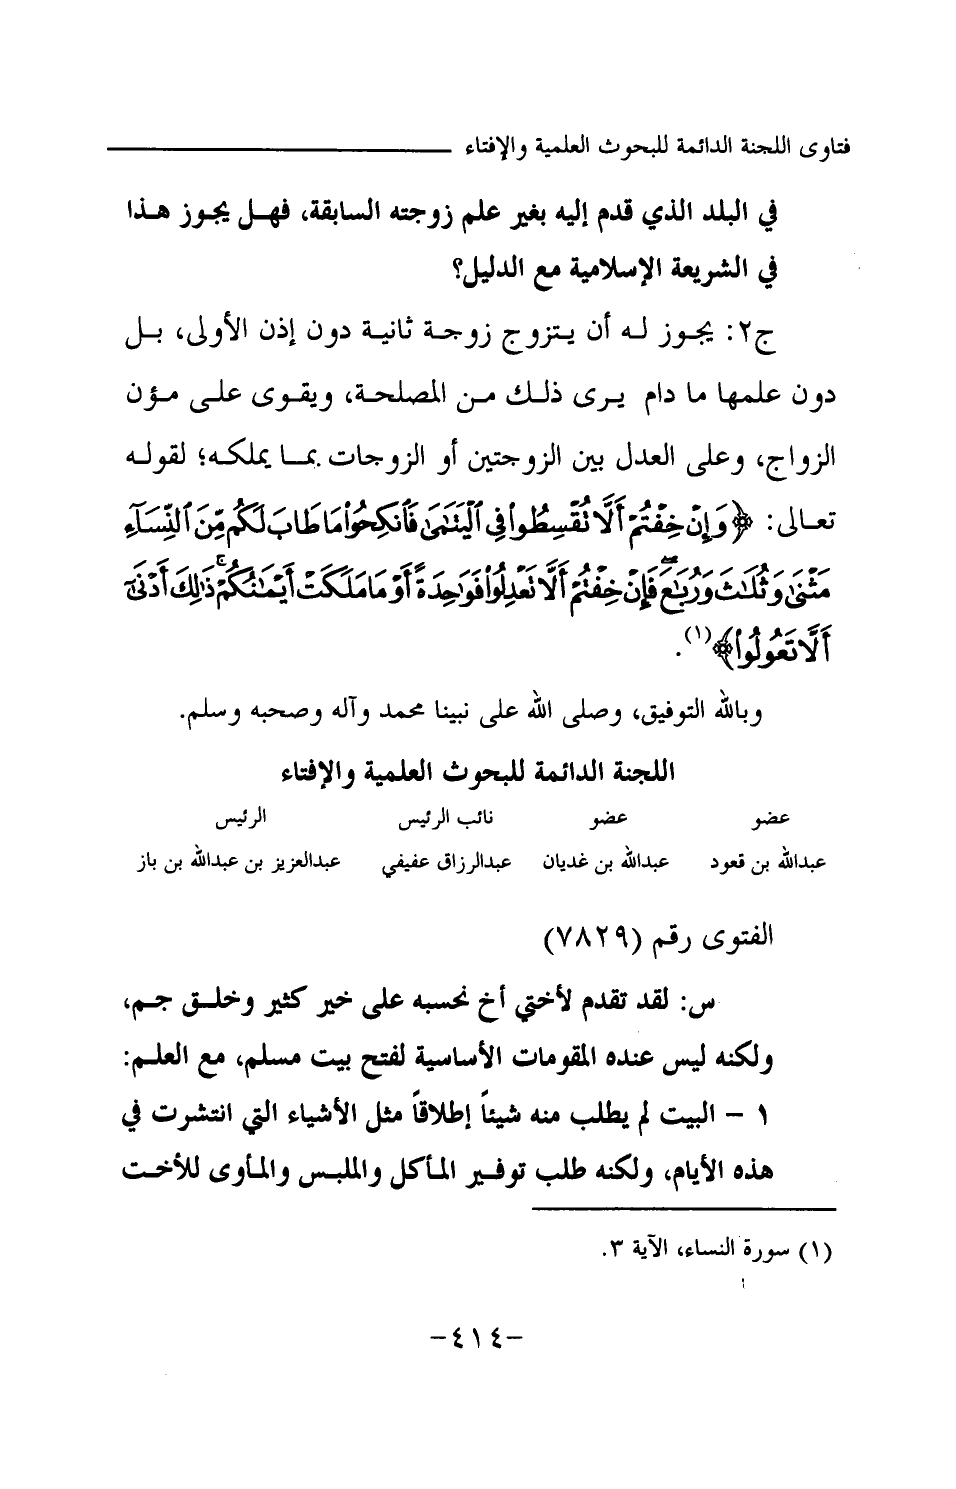 فتاوى اللجنة الدائمة للبحوث العلمية والإفتاء
في البلد الذي قدم إليه بغير علم زوجته السابقة، فهل يجوز هذا
في الشريعة الإسلامية مع الدليل؟
ج٢: يجوز له أن يتزوج زوجة ثانية دون إذن الأولى، بل
دون علمها ما دام يرى ذلك من المصلحة، ويقوى على مؤن
الزواج، وعلى العدل بين الزوجتين أو الزوجات بما يملكه؛ لقوله
تعالى: ﴿وَإِنْ خِفْتُمْ أَلَّا تُقْسِطُوا۟ فِى ٱلْيَتَـٰمَىٰ فَٱنكِحُوا۟ مَا طَابَ لَكُم مِّنَ ٱلنِّسَآءِ
مَثْنَىٰ وَثُلَـٰثَ وَرُبَـٰعَ ۖ فَإِنْ خِفْتُمْ أَلَّا تَعْدِلُوا۟ فَوَٰحِدَةً أَوْ مَا مَلَكَتْ أَيْمَـٰنُكُمْ ۚ ذَٰلِكَ أَدْنَىٰٓ
أَلَّا تَعُولُوا۟﴾(١).
وبالله التوفيق، وصلى الله على نبينا محمد وآله وصحبه وسلم.
اللجنة الدائمة للبحوث العلمية والإفتاء
عضو عضو نائب الرئيس الرئيس
عبدالله بن قعود عبدالله بن غديان عبدالرزاق عفيفي عبدالعزيز بن عبدالله بن باز
الفتوى رقم (٧٨٢٩)
س: لقد تقدم لأختي أخ نحسبه على خير كثير وخلق جم،
ولكنه ليس عنده المقومات الأساسية لفتح بيت مسلم، مع العلم:
١ – البيت لم يطلب منه شيئاً إطلاقاً مثل الأشياء التي انتشرت في
هذه الأيام، ولكنه طلب توفير المأكل والملبس والمأوى للأخت
(١) سورة النساء، الآية ٣.
-٤١٤-